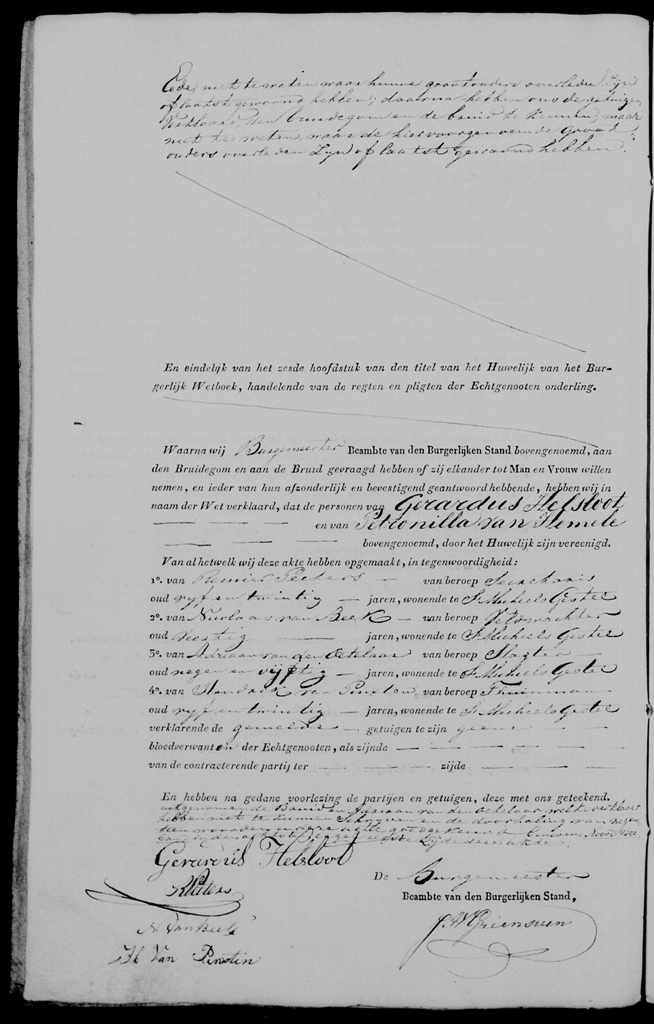 Eede niet te weten waar hunne grootouders overleden Zijn
of laatst gewoond hebben; daarna hebben ons de getuigen
verklaard den bruidegom en de bruid te kennen, maar
niet te weten waar de hiervoorgenoemde groot
ouders overleden Zijn of laatst gewoond hebben.
En eindelijk van het zesde hoofdstuk van den titel van het Huwelijk van het Bur-
gerlijk Wetboek, handelende van de regten en pligten der Echtgenooten onderling.
Waarna wij Burgemeester Beambte van den Burgerlijken Stand bovengenoemd, aan
den Bruidegom en aan de Bruid gevraagd hebben of zij elkander tot Man en Vrouw willen
nemen, en ieder van hun afzonderlijk en bevestigend geantwoord hebbende, hebben wij in
naam der Wet verklaard, dat de personen van Gerardus Helsloot
en van Petronilla van Hemele
bovengenoemd, door het Huwelijk zijn vereenigd.
Van al hetwelk wij deze akte hebben opgemaakt, in tegenwoordigheid:
1º. van Peeters van beroep
oud vyf en twintig jaren, wonende te St Michiels Gestel
2º. van Nicolaas van Beek van beroep Veldwachter
oud zestig jaren, wonende te St Michiels Gestel
3º. van Adriaan van den Oetelaar van beroep
oud negen en vyftig jaren, wonende te St Michiels Gestel
4º. van van van beroep Thuinman
oud vyf en twintig jaren, wonende te St Michiels Gestel
verklarende de gemeene getuigen te zijn geene
bloedverwanten der Echtgenooten, als zijnde
van de contracterende partij ter zijde
En hebben na gedane voorlezing de partijen en getuigen, deze met ons geteekend.
uitgenomen de Bruid en Adriaan van den Oetelaar welke verklaard
hebben niet te kunnen Schryven en de doorhaling van
Gerardus Helsloot
De Burgemeester
Beambte van den Burgerlijken Stand,
N van Beek
H Van